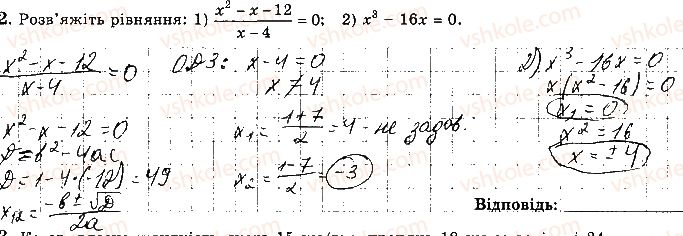 2. Розв'яжіть рівняння: 1) (x² - x - 12)/(x - 4) = 0; 2) x³ - 16x = 0.
(x² - x - 12)/(x - 4) = 0
x² - x - 12 = 0
D = b² - 4ac
D = 1 - 4·(-12) = 49
x₁₂ = (-b ± √D)/2a
ОДЗ: x - 4 = 0
x ≠ 4
x₁ = (1 + 7)/2 = 4 - не задов.
x₂ = (1 - 7)/2 = -3
2) x³ - 16x = 0
x(x² - 16) = 0
x₁ = 0
x² = 16
x = ± 4
Відповідь: